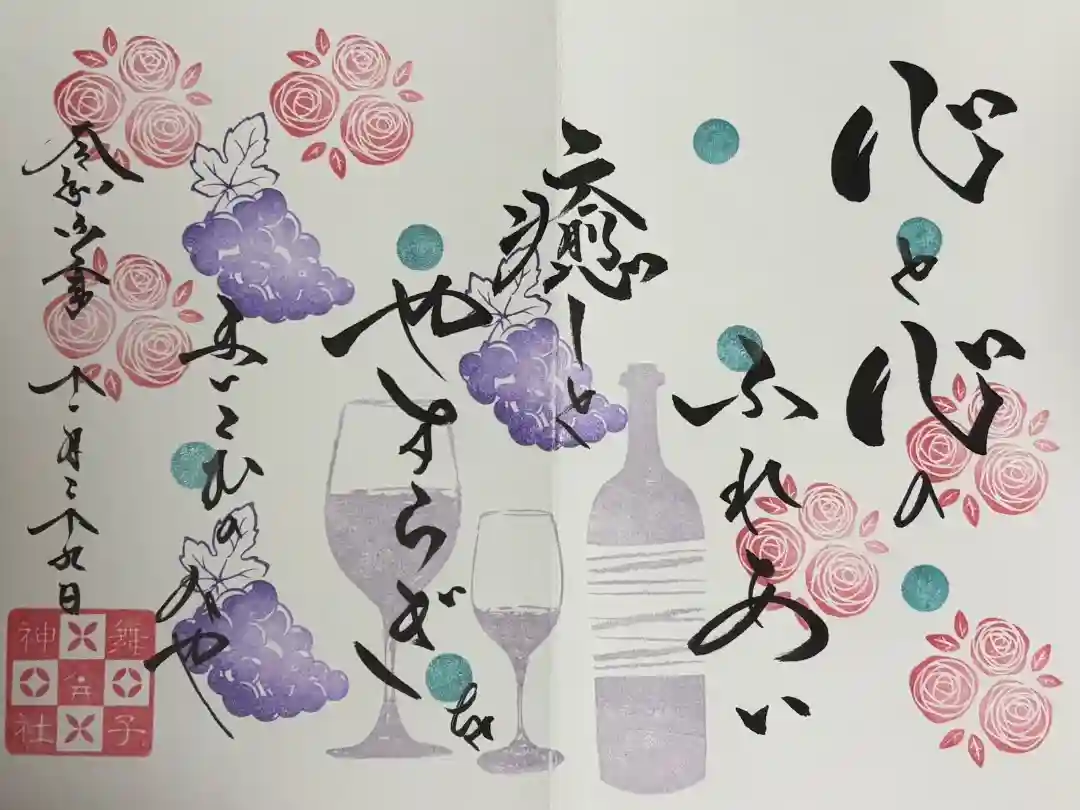 心と心の
ふれあい
癒しと
やすらぎを
まいこむのみや
令和六年 十一月二十九日
舞子六神社